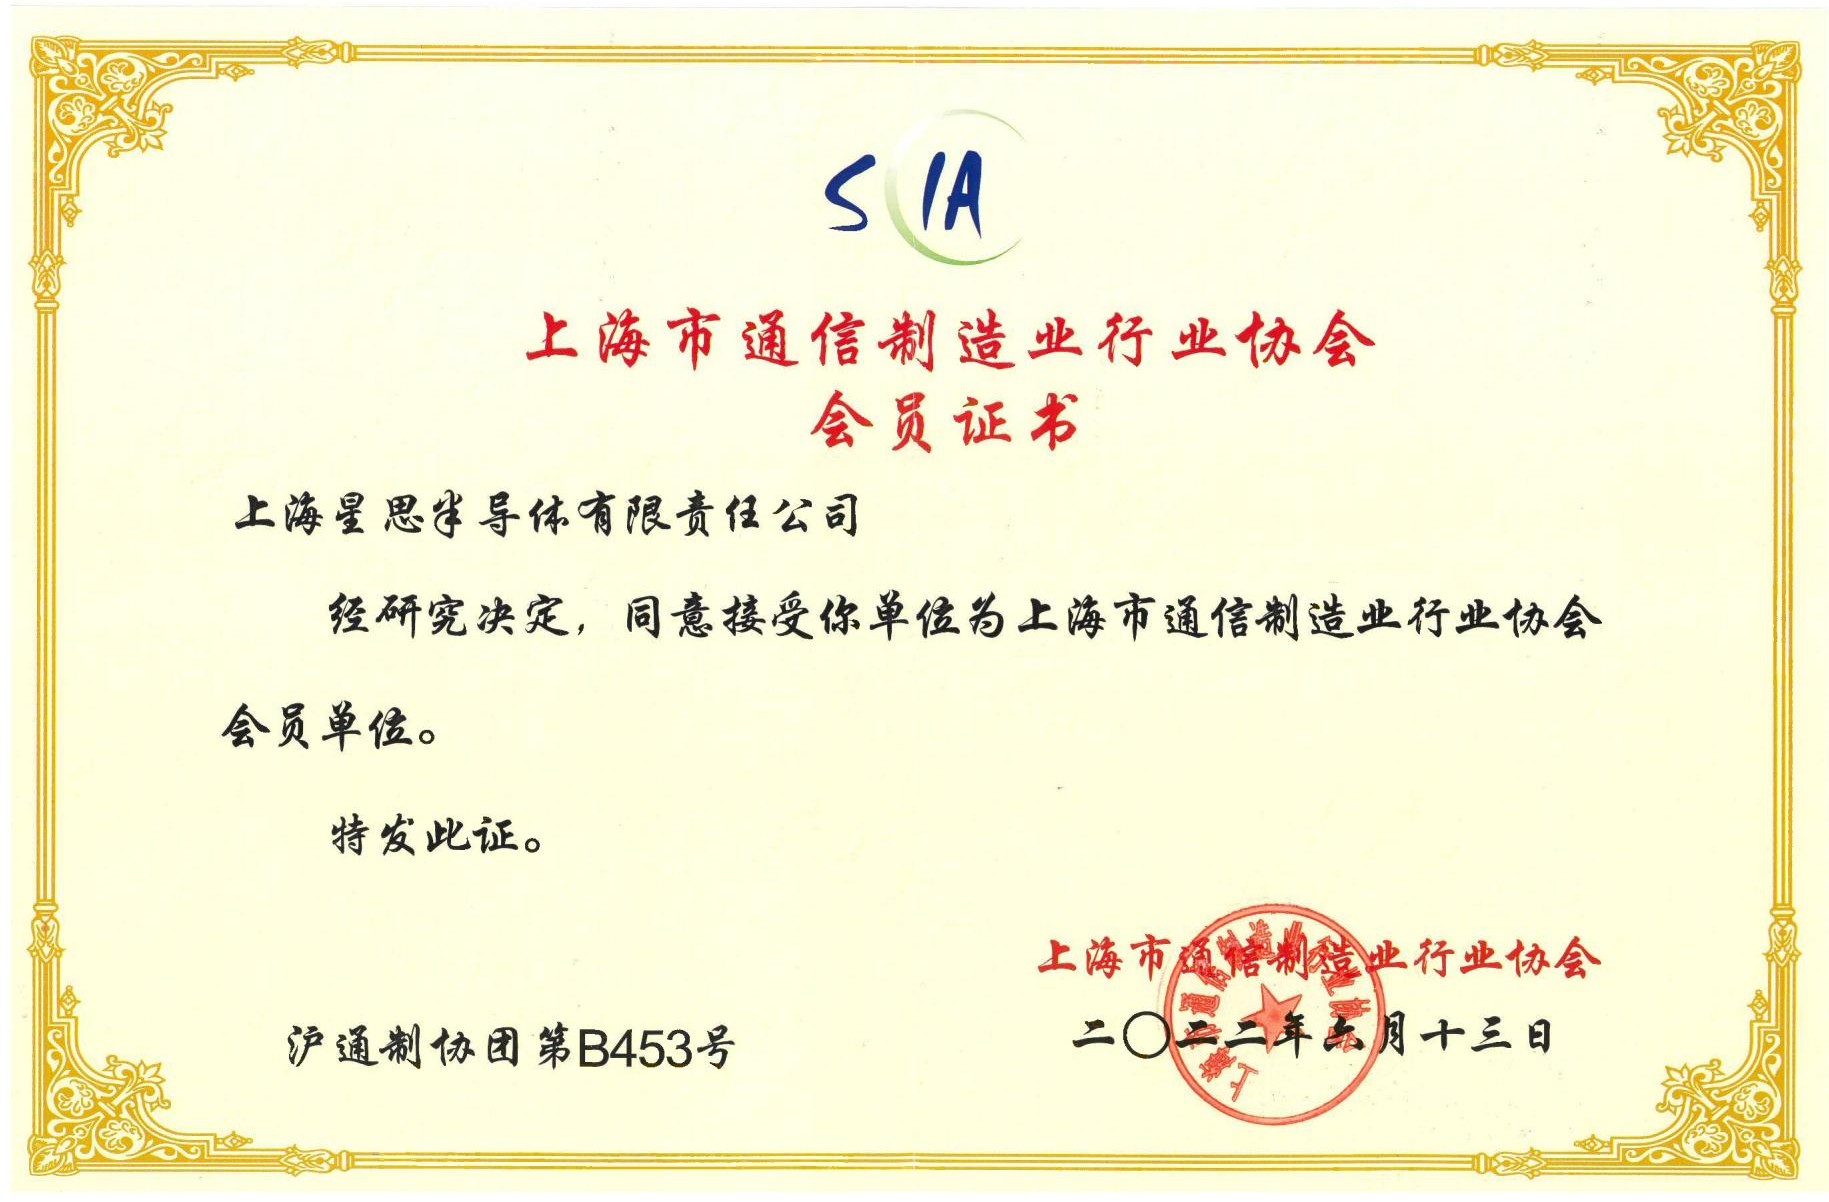 SCIA
上海市通信制造业行业协会
会员证书
上海星思半导体有限责任公司
经研究决定，同意接受你单位为上海市通信制造业行业协会
会员单位。
特发此证。
上海市通信制造业行业协会
沪通制协团第B453号
二〇二二年六月十三日
上海市通信制造业行业协会